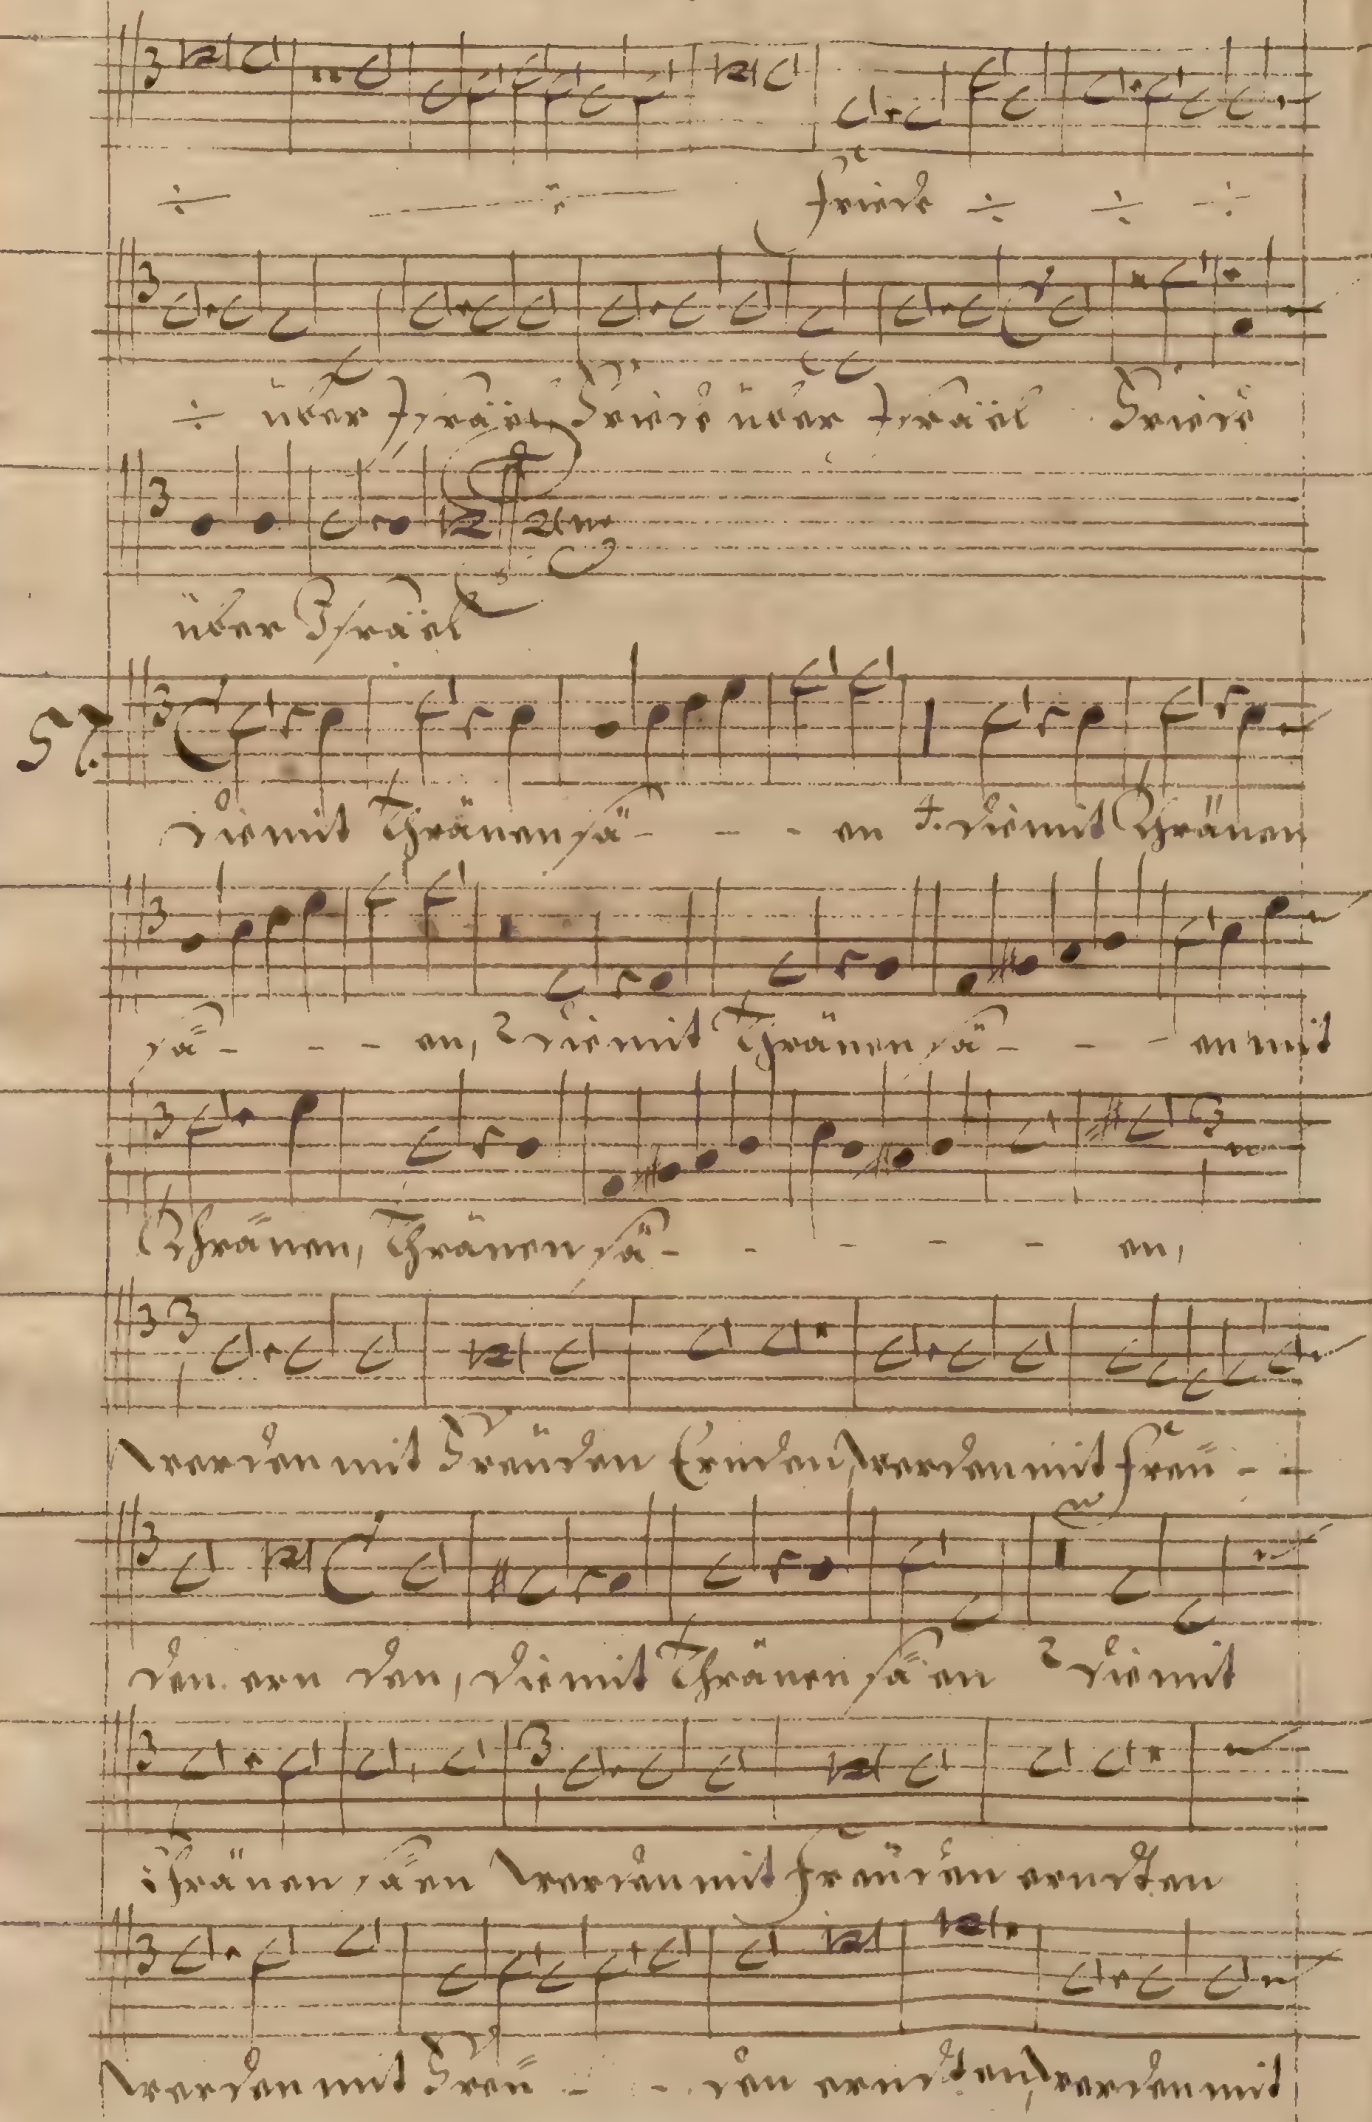 ÷ ÷ friede ÷ ÷ ÷
÷ über Israël, Friede über Israël Friede
über Israël
57.
die mit Thränen sä - - - en 4. die mit Thränen
sä - - - en, 2 die mit Thränen sä - - - en mit
Thränen, Thränen sä - - - - - en,
werden mit Freüden Ernden, werden mit freü - -
den ern den, die mit Thränen sä en 2 die mit
Thränen säen werden mit freüden erndten
werden mit Freü - - den erndten, werden mit